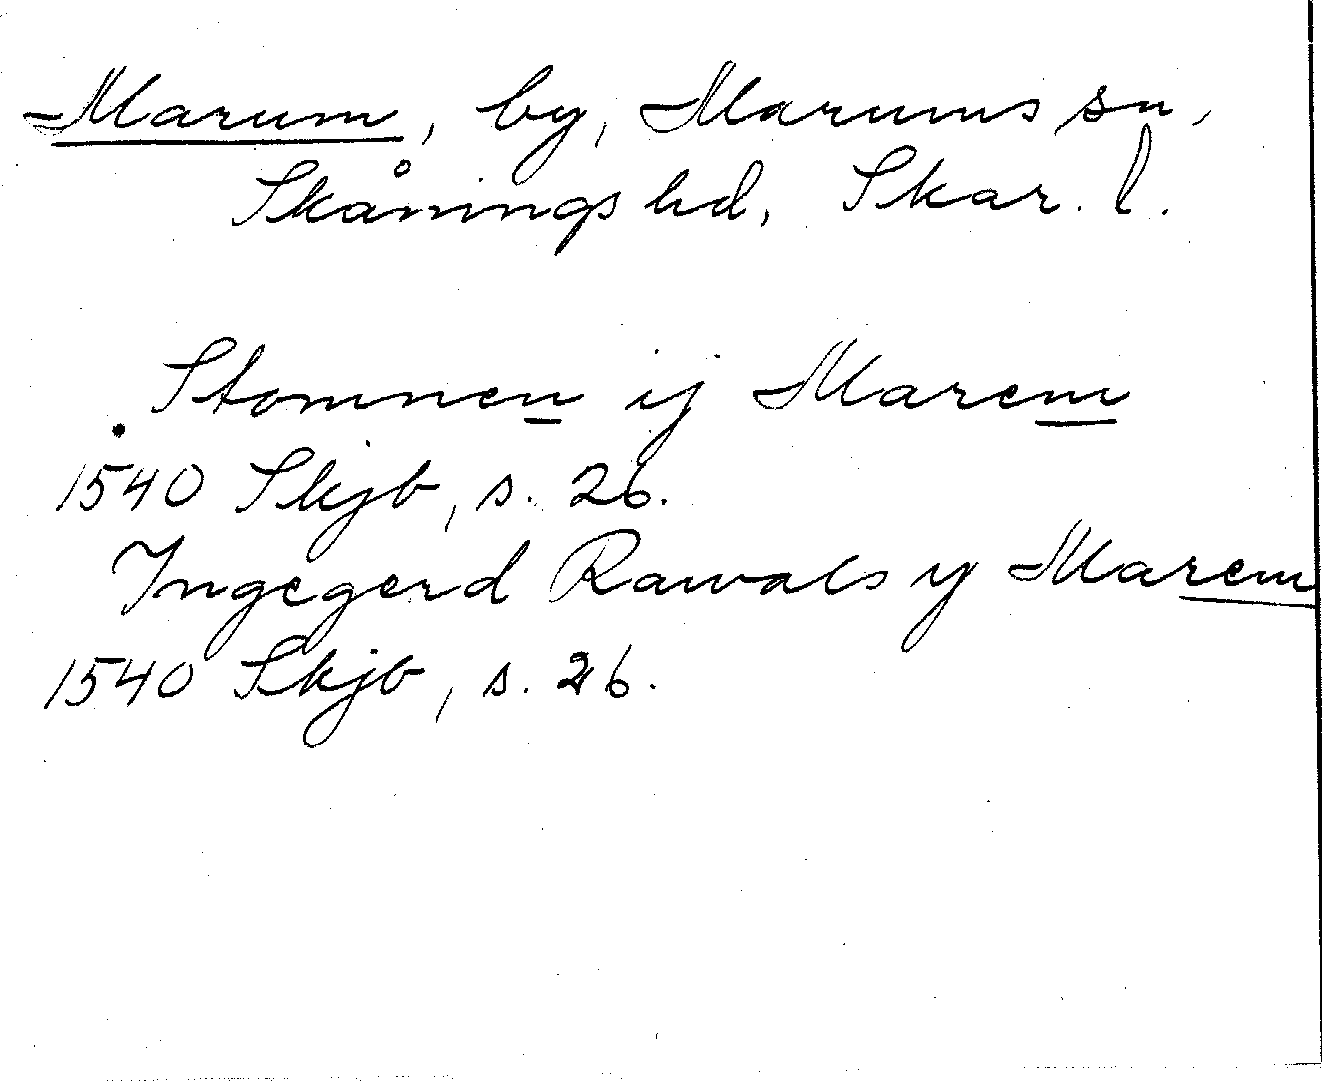 Marum, by, Marums sn,
Skånings hd, Skar. l.
Stomnen ij Marem
1540 Skjb, s. 26.
Ingegerd Rawals y Marem
1540 Skjb, s. 26.